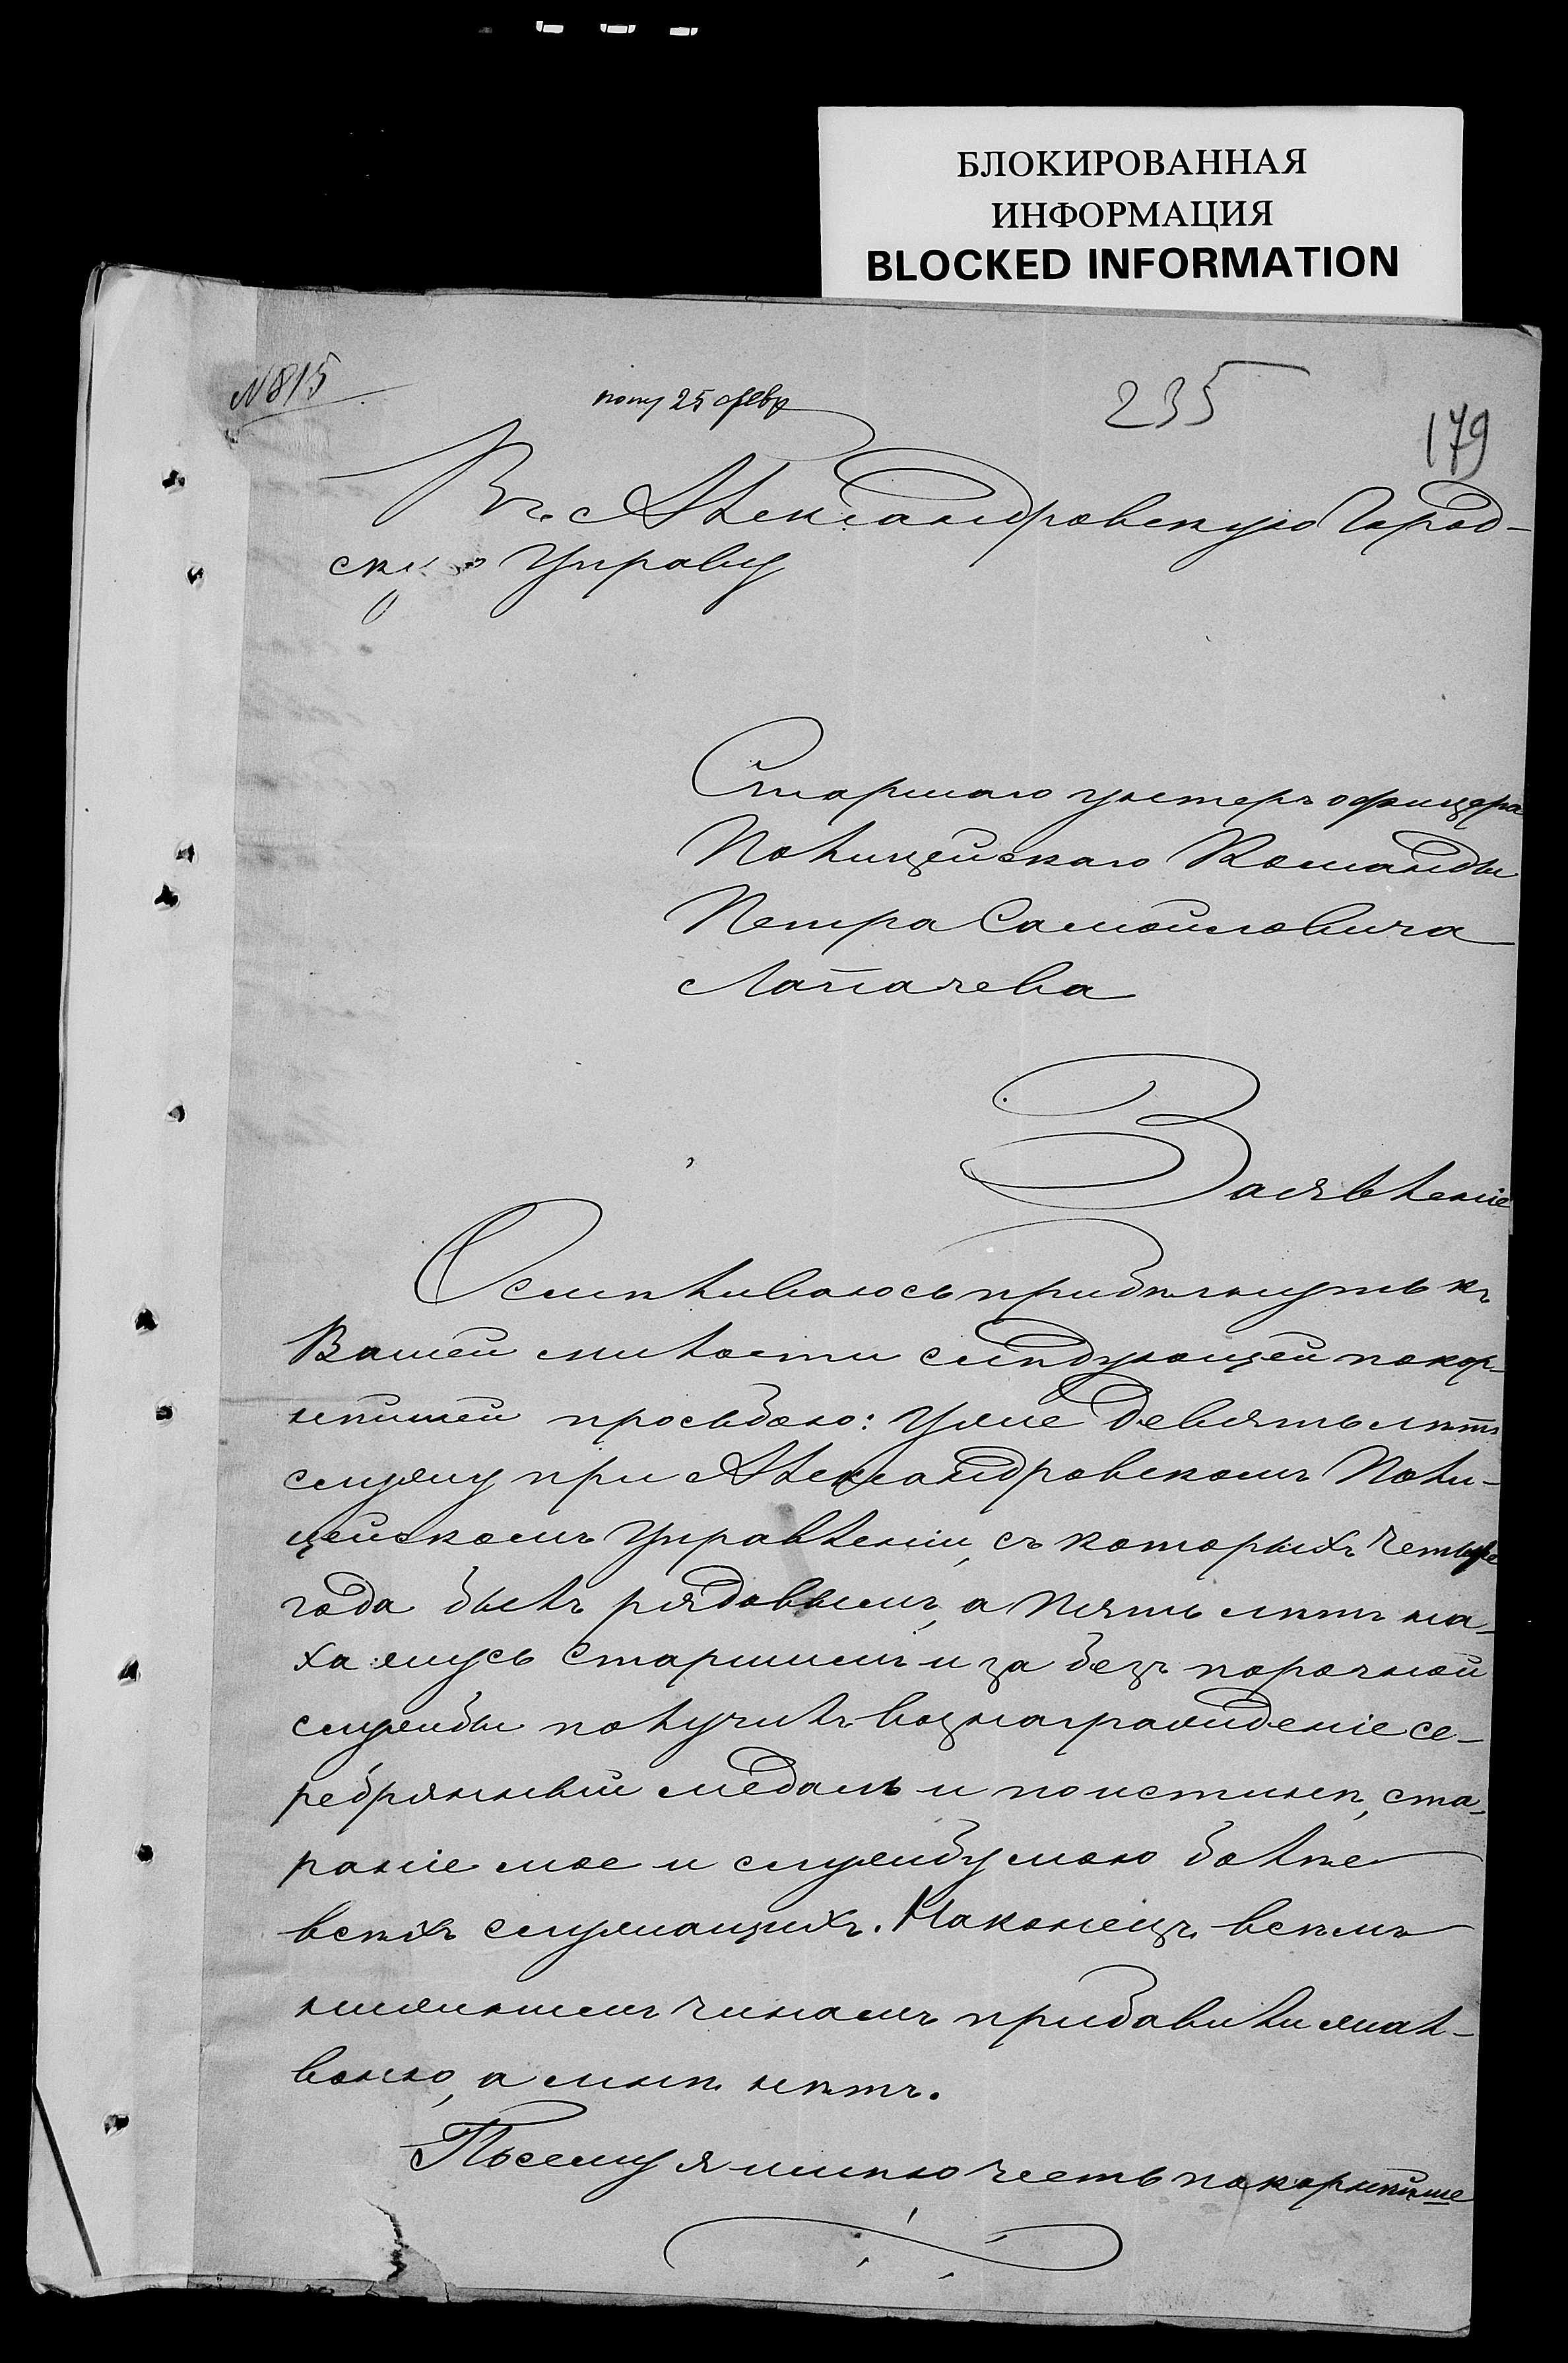 БЛОКИРОВАННАЯ
ИНФОРМАЦИЯ
BLOCKED INFORMATION
N 815
полу 25 февр
235
179
Въ Александровскую Город-
скую Управу
Старшаго унтеръ офицера
Полицейскаго Команды
Петра Самойловича
Лапачева
Заявленіе
Осмѣливаюсь прибѣгнуть къ
Вашей милости слѣдующей покор-
нѣйшей просьбою: Уже девять лѣтъ
служу при Александровскомъ Поли-
цейскомъ Управленіи, съ которыхъ четыре
года былъ рядовымъ, а пять лѣтъ на-
хажусь старшимъ и за безъ порочной
службы получилъ вознагражденіе се-
ребрянный медаль и поистинѣ, ста-
раніе мое и службу мою болѣе
всѣхъ служащихъ. Наконецъ всѣмъ
нижнымъ чинамъ прибавили жал-
ванью, а мнѣ нѣтъ.
Посему я имѣю честь покорнѣйше